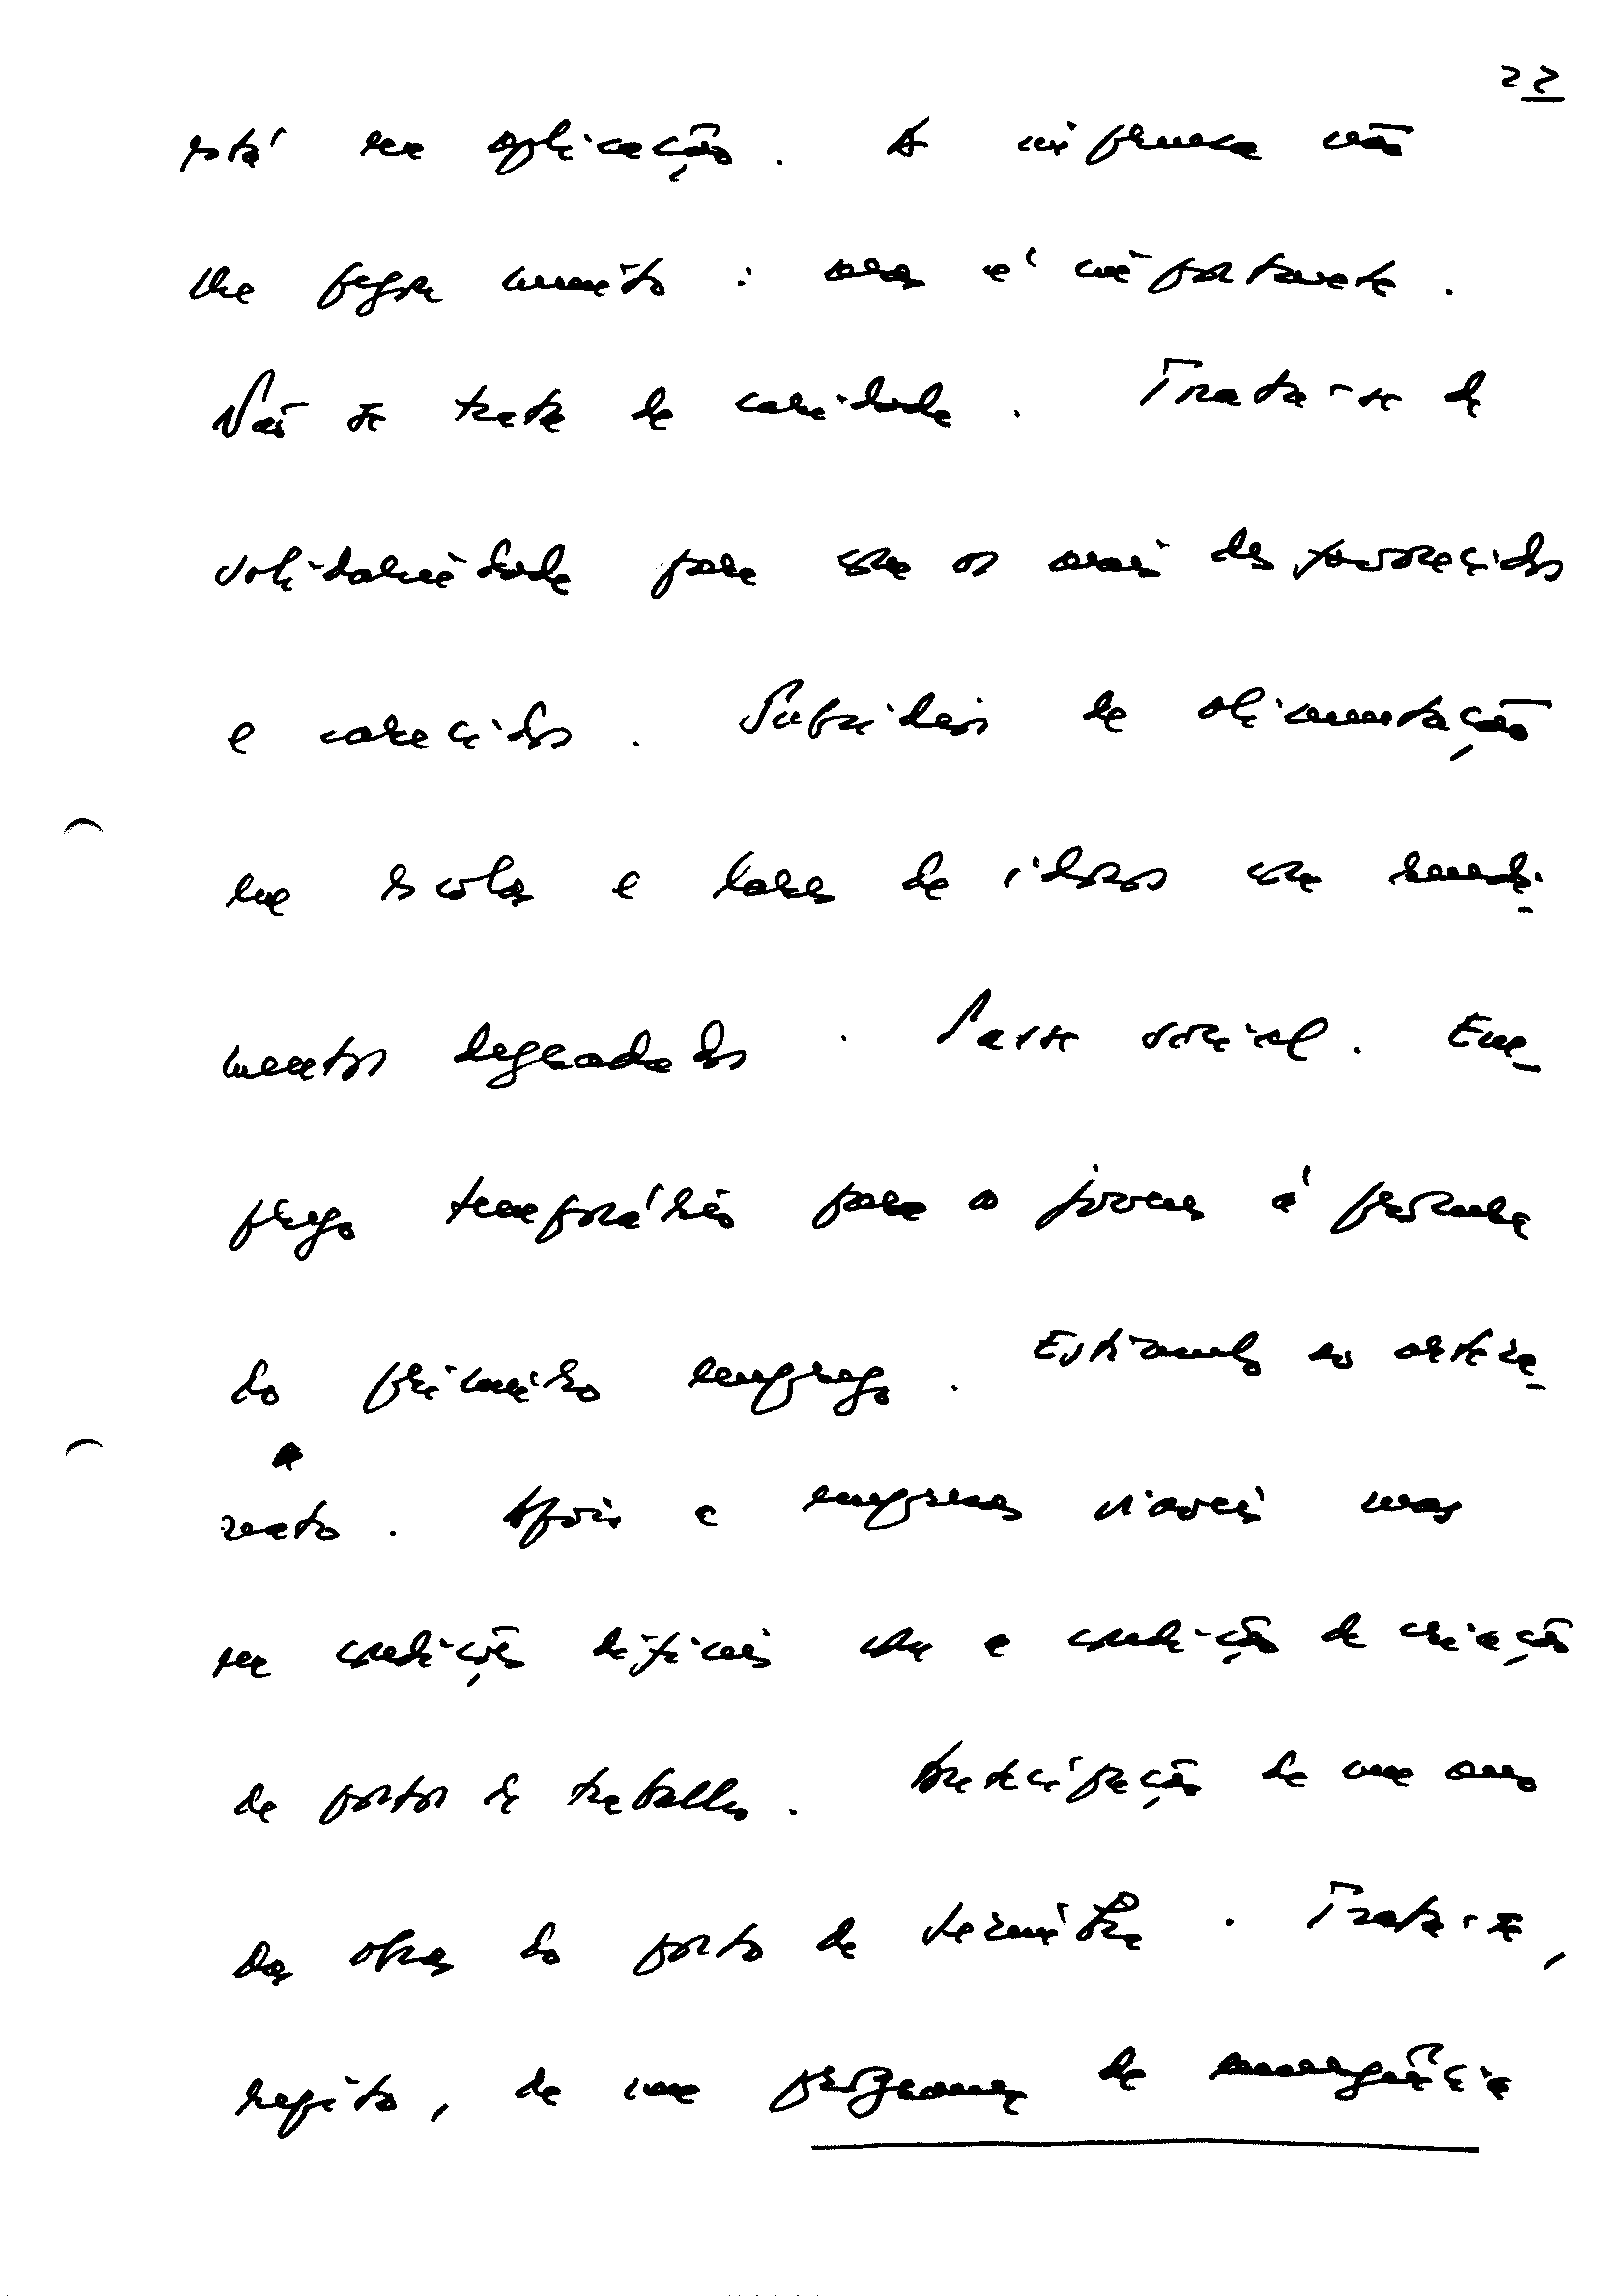 22
está em aplicação. A imprensa não
lhe pegou muito: mas é importante.
Não se trata de caridade. Trata-se de
solidariedade para com os mais desfavorecidos
e carecidos. Subsídios de alimentação
em escolas e lares de idosos com rendi-
mentos degradados. Passe social. Em-
prego temporário para os jovens à procura
do primeiro emprego. Estímulos ao artesa-
nato. Apoio a empresas viáveis mas
em condições difíceis com a condição de criação
de postos de trabalho. Antecipação de um ano
das obras do porto de Setúbal. Trata-se,
repito, de um programa de emergência